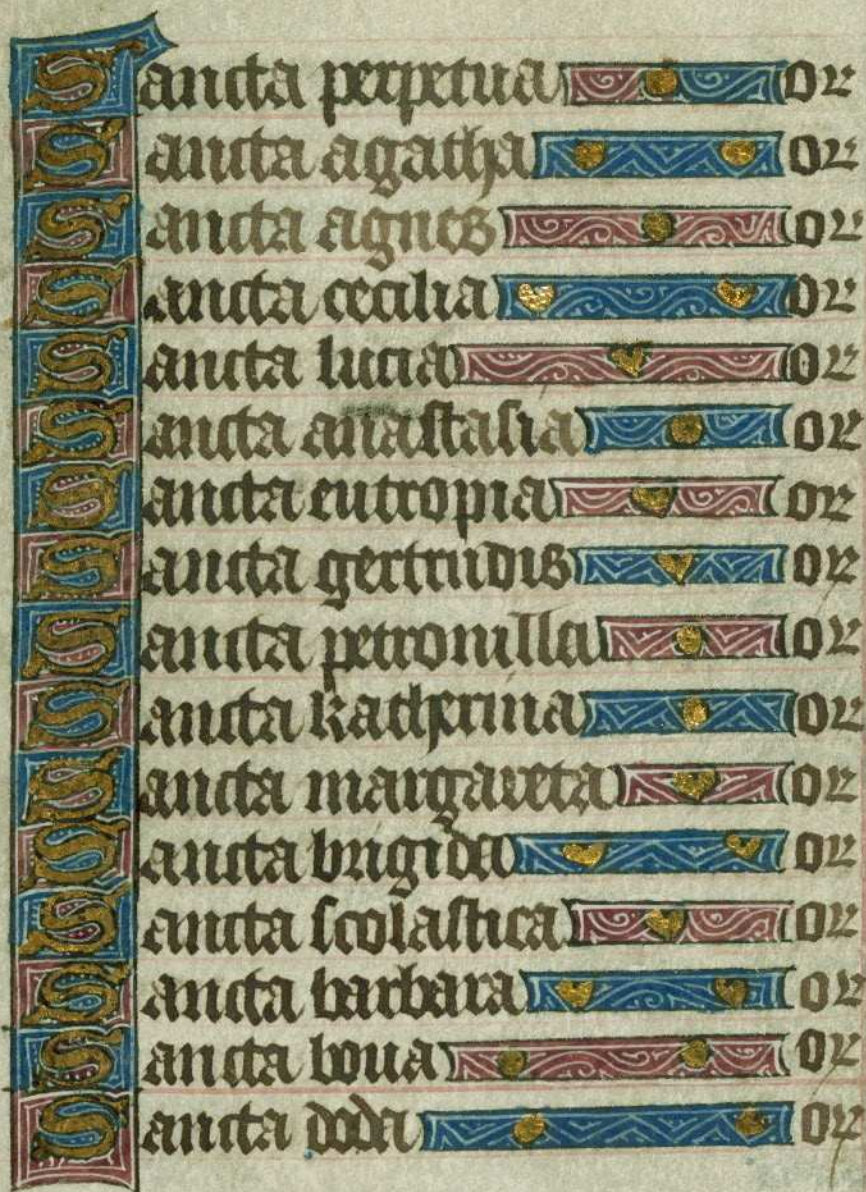 Sancta perpetua or
Sancta agatha or
Sancta agnes or
Sancta cecilia or
Sancta lucia or
Sancta anastasia or
Sancta eutropia or
Sancta gertrudis or
Sancta petronilla or
Sancta katherina or
Sancta margareta or
Sancta brigida or
Sancta scolastica or
Sancta barbara or
Sancta boua or
Sancta doda or